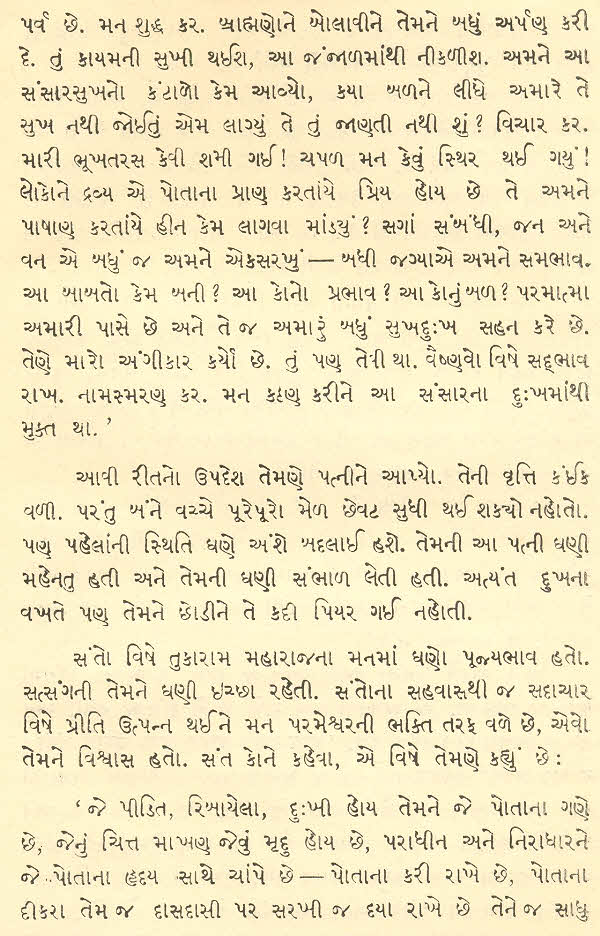 પર્વ છે. મન શુદ્ધ કર. બ્રાહ્મણોને બોલાવીને તેમને બધું અર્પણ કરી
દે. તું કાયમની સુખી થઈશ, આ જંજાળમાંથી નીકળીશ. અમને આ
સંસારસુખનો કંટાળો કેમ આવ્યો, કયા બળને લીધે અમારે તે
સુખ નથી જોઈતું એમ લાગ્યું તે તું જાણતી નથી શું? વિચાર કર.
મારી ભૂખતરસ કેવી શમી ગઈ! ચપળ મન કેવું સ્થિર થઈ ગયું!
લોકોને દ્રવ્ય એ પોતાના પ્રાણ કરતાંયે પ્રિય હોય છે તે અમને
પાષાણ કરતાંયે હીન કેમ લાગવા માંડ્યું? સગાં સંબંધી, જન અને
વન એ બધું જ અમને એકસરખું — બધી જગ્યાએ અમને સમભાવ.
આ બાબતો કેમ બની? આ કોનો પ્રભાવ? આ કોનું બળ? પરમાત્મા
અમારી પાસે છે અને તે જ અમારું બધું સુખદુઃખ સહન કરે છે.
તેણે મારો અંગીકાર કર્યો છે. તું પણ તેવી થા. વૈષ્ણવો વિષે સદ્ભાવ
રાખ. નામસ્મરણ કર. મન કઠણ કરીને આ સંસારના દુઃખમાંથી
મુક્ત થા.’
આવી રીતનો ઉપદેશ તેમણે પત્નીને આપ્યો. તેની વૃત્તિ કંઈક
વળી. પરંતુ બંને વચ્ચે પૂરેપૂરો મેળ છેવટ સુધી થઈ શક્યો નહોતો.
પણ પહેલાંની સ્થિતિ ઘણે અંશે બદલાઈ હશે. તેમની આ પત્ની ઘણી
મહેનતુ હતી અને તેમની ઘણી સંભાળ લેતી હતી. અત્યંત દુખના
વખતે પણ તેમને છોડીને તે કદી પિયર ગઈ નહોતી.
સંતો વિષે તુકારામ મહારાજના મનમાં ઘણો પૂજ્યભાવ હતો.
સત્સંગની તેમને ઘણી ઇચ્છા રહેતી. સંતોના સહવાસથી જ સદાચાર
વિષે પ્રીતિ ઉત્પન્ન થઈને મન પરમેશ્વરની ભક્તિ તરફ વળે છે, એવો
તેમને વિશ્વાસ હતો. સંત કોને કહેવા, એ વિષે તેમણે કહ્યું છે:
‘જે પીડિત, રિબાયેલા, દુઃખી હોય તેમને જે પોતાના ગણે
છે, જેનું ચિત્ત માખણ જેવું મૃદુ હોય છે, પરાધીન અને નિરાધારને
જે પોતાના હૃદય સાથે ચાંપે છે — પોતાના કરી રાખે છે, પોતાના
દીકરા તેમ જ દાસદાસી પર સરખી જ દયા રાખે છે તેને જ સાધુ